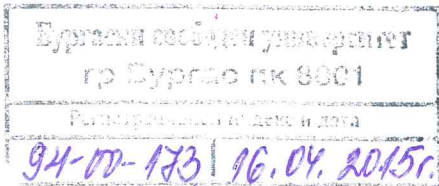 Бургаски свободен университет
гр. Бургас пк 8001
Регистрационен индекс и дата
94-00-173 16.04.2015г.